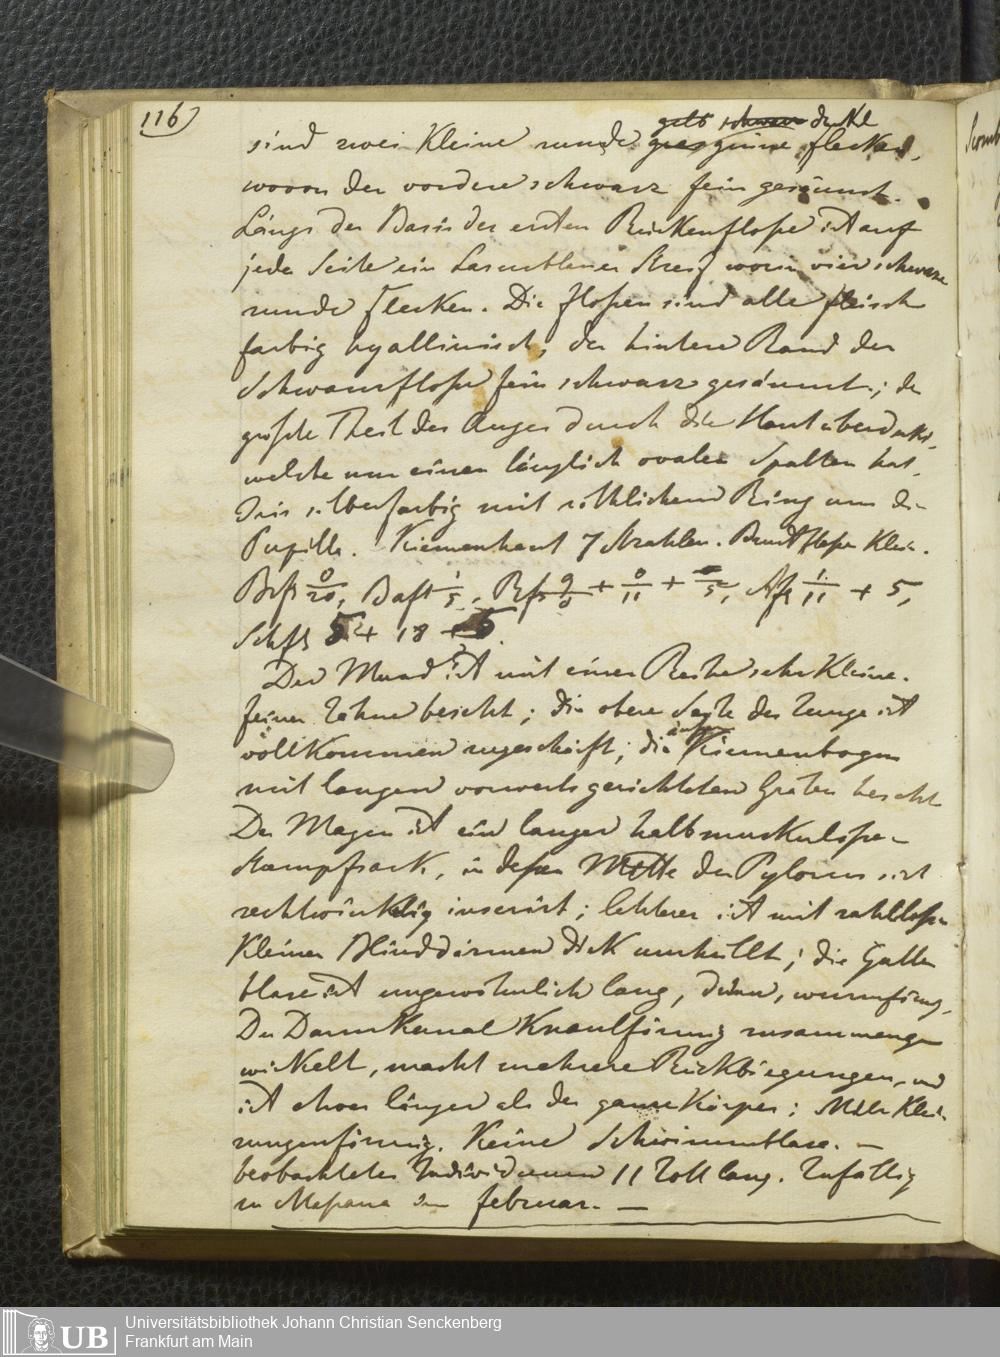 116)
gelb schwarz dunkl
sind zwei kleine runde grasgrüne flecken,
wovon der vordere schwarz fein gesäumt.
Längs der Basis der ersten Rückenflosse ist auf
jede Seite ein Lasurblauer Streif worin vier schwarze
runde Flecken. Die flossen sind alle fleisch
farbig hyallinisch, der hintere Rand der
Schwanzflosse fein schwarz gesäumt; der
größte Theil des Auges durch die Haut überdeckt,
welche nur einen länglich ovalen Spalten hat,
Iris silberfarbig mit röthlichem Ring um die
Pupille. Kiemenhaut 7 Strahlen. Brustflosse klein.
Brfl 0/20, Bafl 1/5, Rfl 9/0 + 0/11 + 5, Afl 1/11 + 5,
Schfl 5 + 18 + 5.
Der Mund ist mit einer Reihe sehr kleiner
feiner Zähne besetzt; die obere Seite der Zunge ist
vollkommen ; die Kiemenbogen
mit langen vorwerts gerichteten Gräten besetzt
Der Magen ist ein langer halbmuskulöser
Stampfsack, in dessen Mitte der Pylorus sich
rechtwinklig inserirt; letzterer ist mit zahllosen
kleinen Blinddärmen dick umhüllt; die Gallen
blase ist ungewöhnlich lang, dünn, wurmförmig,
Der Darmkanal Knaulförmig zusammenge
wickelt, macht mehrere Rückbiegungen, und
ist etwas länger als der ganze Körper; Milz klein
zungenförmig. Keine Schwimmblase. —
beobachtetes Individuum 11 Zoll lang. Zufällig
zu Massaua im februar. —
Universitätsbibliothek Johann Christian Senckenberg
Frankfurt am Main
UB